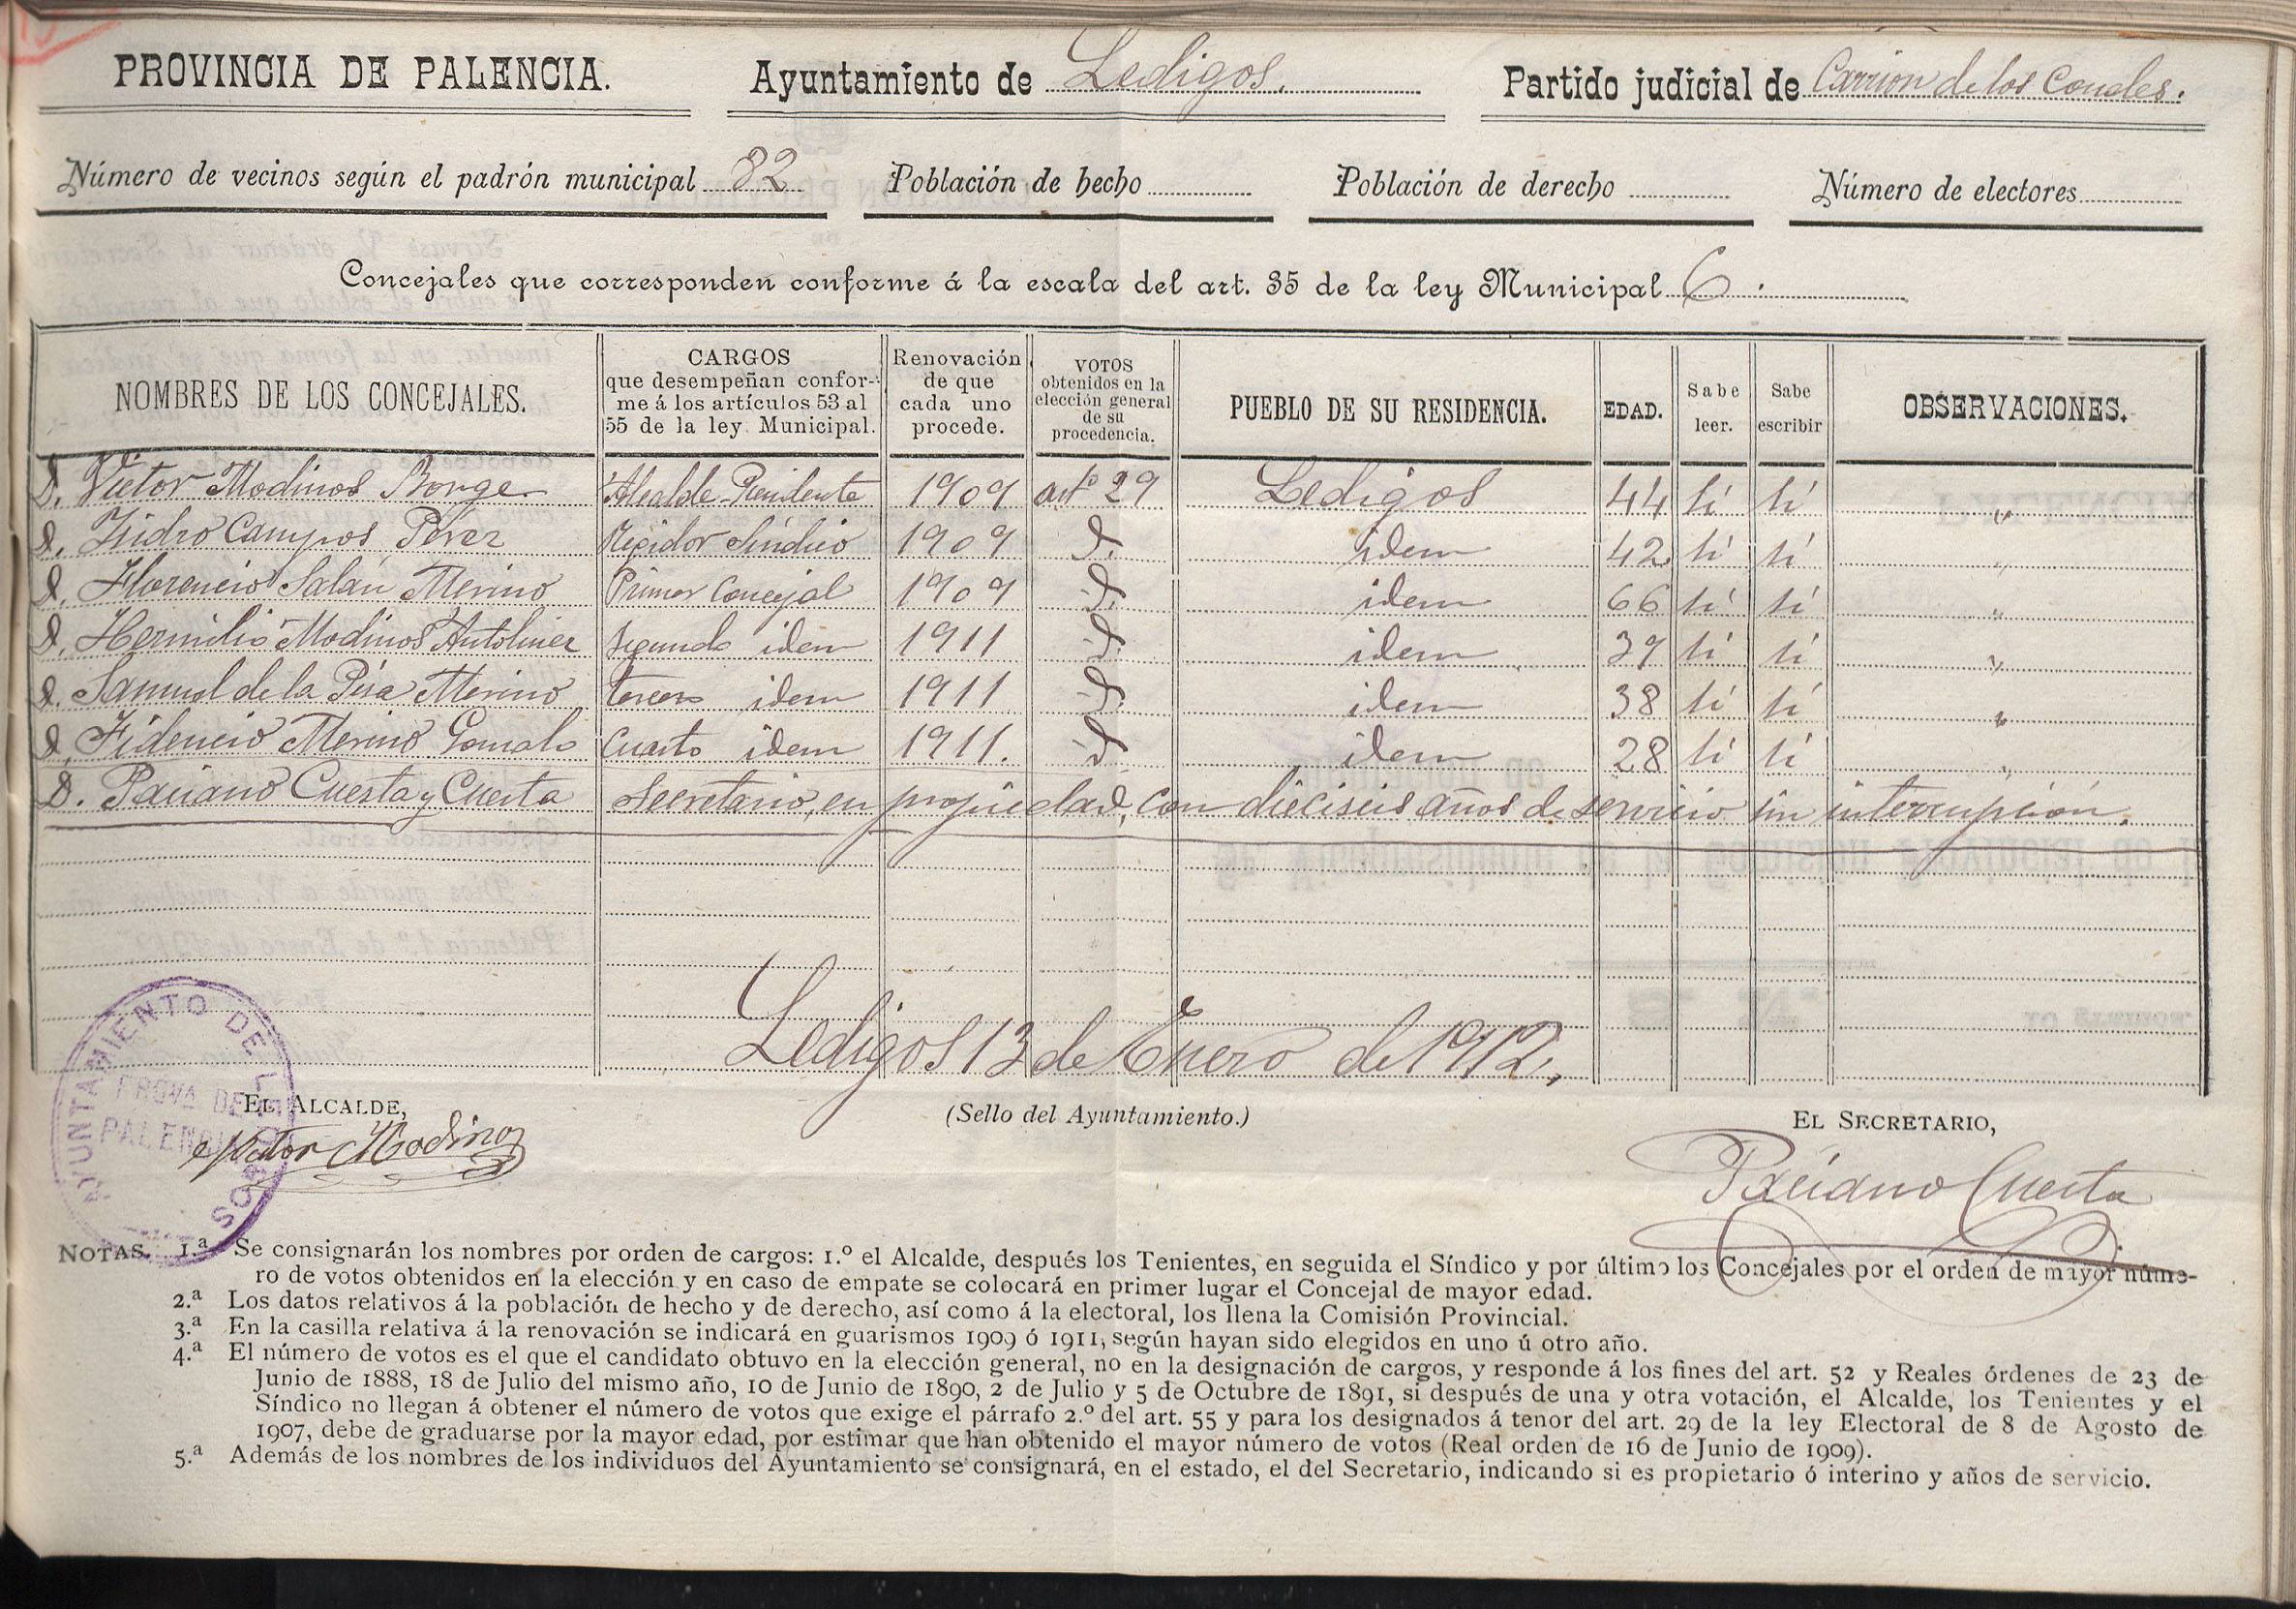 PROVINCIA DE PALENCIA. Ayuntamiento de Ledigos. Partido judicial de Carrion de los Condes.
Número de vecinos según el padrón municipal 82 Población de hecho Población de derecho Número de electores
Concejales que corresponden conforme á la escala del art. 35 de la ley Municipal 6.
NOMBRES DE LOS CONCEJALES.
CARGOS
que desempeñan confor-
me á los artículos 53 al
55 de la ley Municipal.
Renovación
de que
cada uno
procede.
VOTOS
obtenidos en la
elección general
de su
procedencia.
PUEBLO DE SU RESIDENCIA.
EDAD.
Sabe
leer.
Sabe
escribir
OBSERVACIONES.
D. Victor Modinos Borge Alcalde-Presidente 1909 artº 29 Ledigos 44 sí sí "
D. Isidro Campos Pérez Regidor Síndico 1909 id. idem 42 sí sí "
D. Florencio Salán Merino Primer Concejal 1909 id. idem 66 sí sí "
D. Hermilio Modinos Antolinez Segundo idem 1911 id. idem 39 sí sí "
D. Samuel de la Pisa Merino tercero idem 1911 id. idem 38 sí sí "
D. Fidencio Merino Gonzalo Cuarto idem 1911. id idem 28 sí sí "
D. Paciano Cuesta y Cuesta Secretario, en propiedad, con dieciseis años de servicio sin interrupción.
Ledigos 13 de Enero de 1912.
AYUNTAMIENTO DE LEDIGOS
PROVA DE
PALENCIA
EL ALCALDE,
Victor Modinos
(Sello del Ayuntamiento.)
EL SECRETARIO,
Paciano Cuesta
NOTAS. 1.ª Se consignarán los nombres por orden de cargos: 1.º el Alcalde, después los Tenientes, en seguida el Síndico y por último los Concejales por el orden de mayor núme-
ro de votos obtenidos en la elección y en caso de empate se colocará en primer lugar el Concejal de mayor edad.
2.ª Los datos relativos á la población de hecho y de derecho, así como á la electoral, los llena la Comisión Provincial.
3.ª En la casilla relativa á la renovación se indicará en guarismos 1909 ó 1911, según hayan sido elegidos en uno ú otro año.
4.ª El número de votos es el que el candidato obtuvo en la elección general, no en la designación de cargos, y responde á los fines del art. 52 y Reales órdenes de 23 de
Junio de 1888, 18 de Julio del mismo año, 10 de Junio de 1890, 2 de Julio y 5 de Octubre de 1891, si después de una y otra votación, el Alcalde, los Tenientes y el
Síndico no llegan á obtener el número de votos que exige el párrafo 2.º del art. 55 y para los designados á tenor del art. 29 de la ley Electoral de 8 de Agosto de
1907, debe de graduarse por la mayor edad, por estimar que han obtenido el mayor número de votos (Real orden de 16 de Junio de 1909).
5.ª Además de los nombres de los individuos del Ayuntamiento se consignará, en el estado, el del Secretario, indicando si es propietario ó interino y años de servicio.